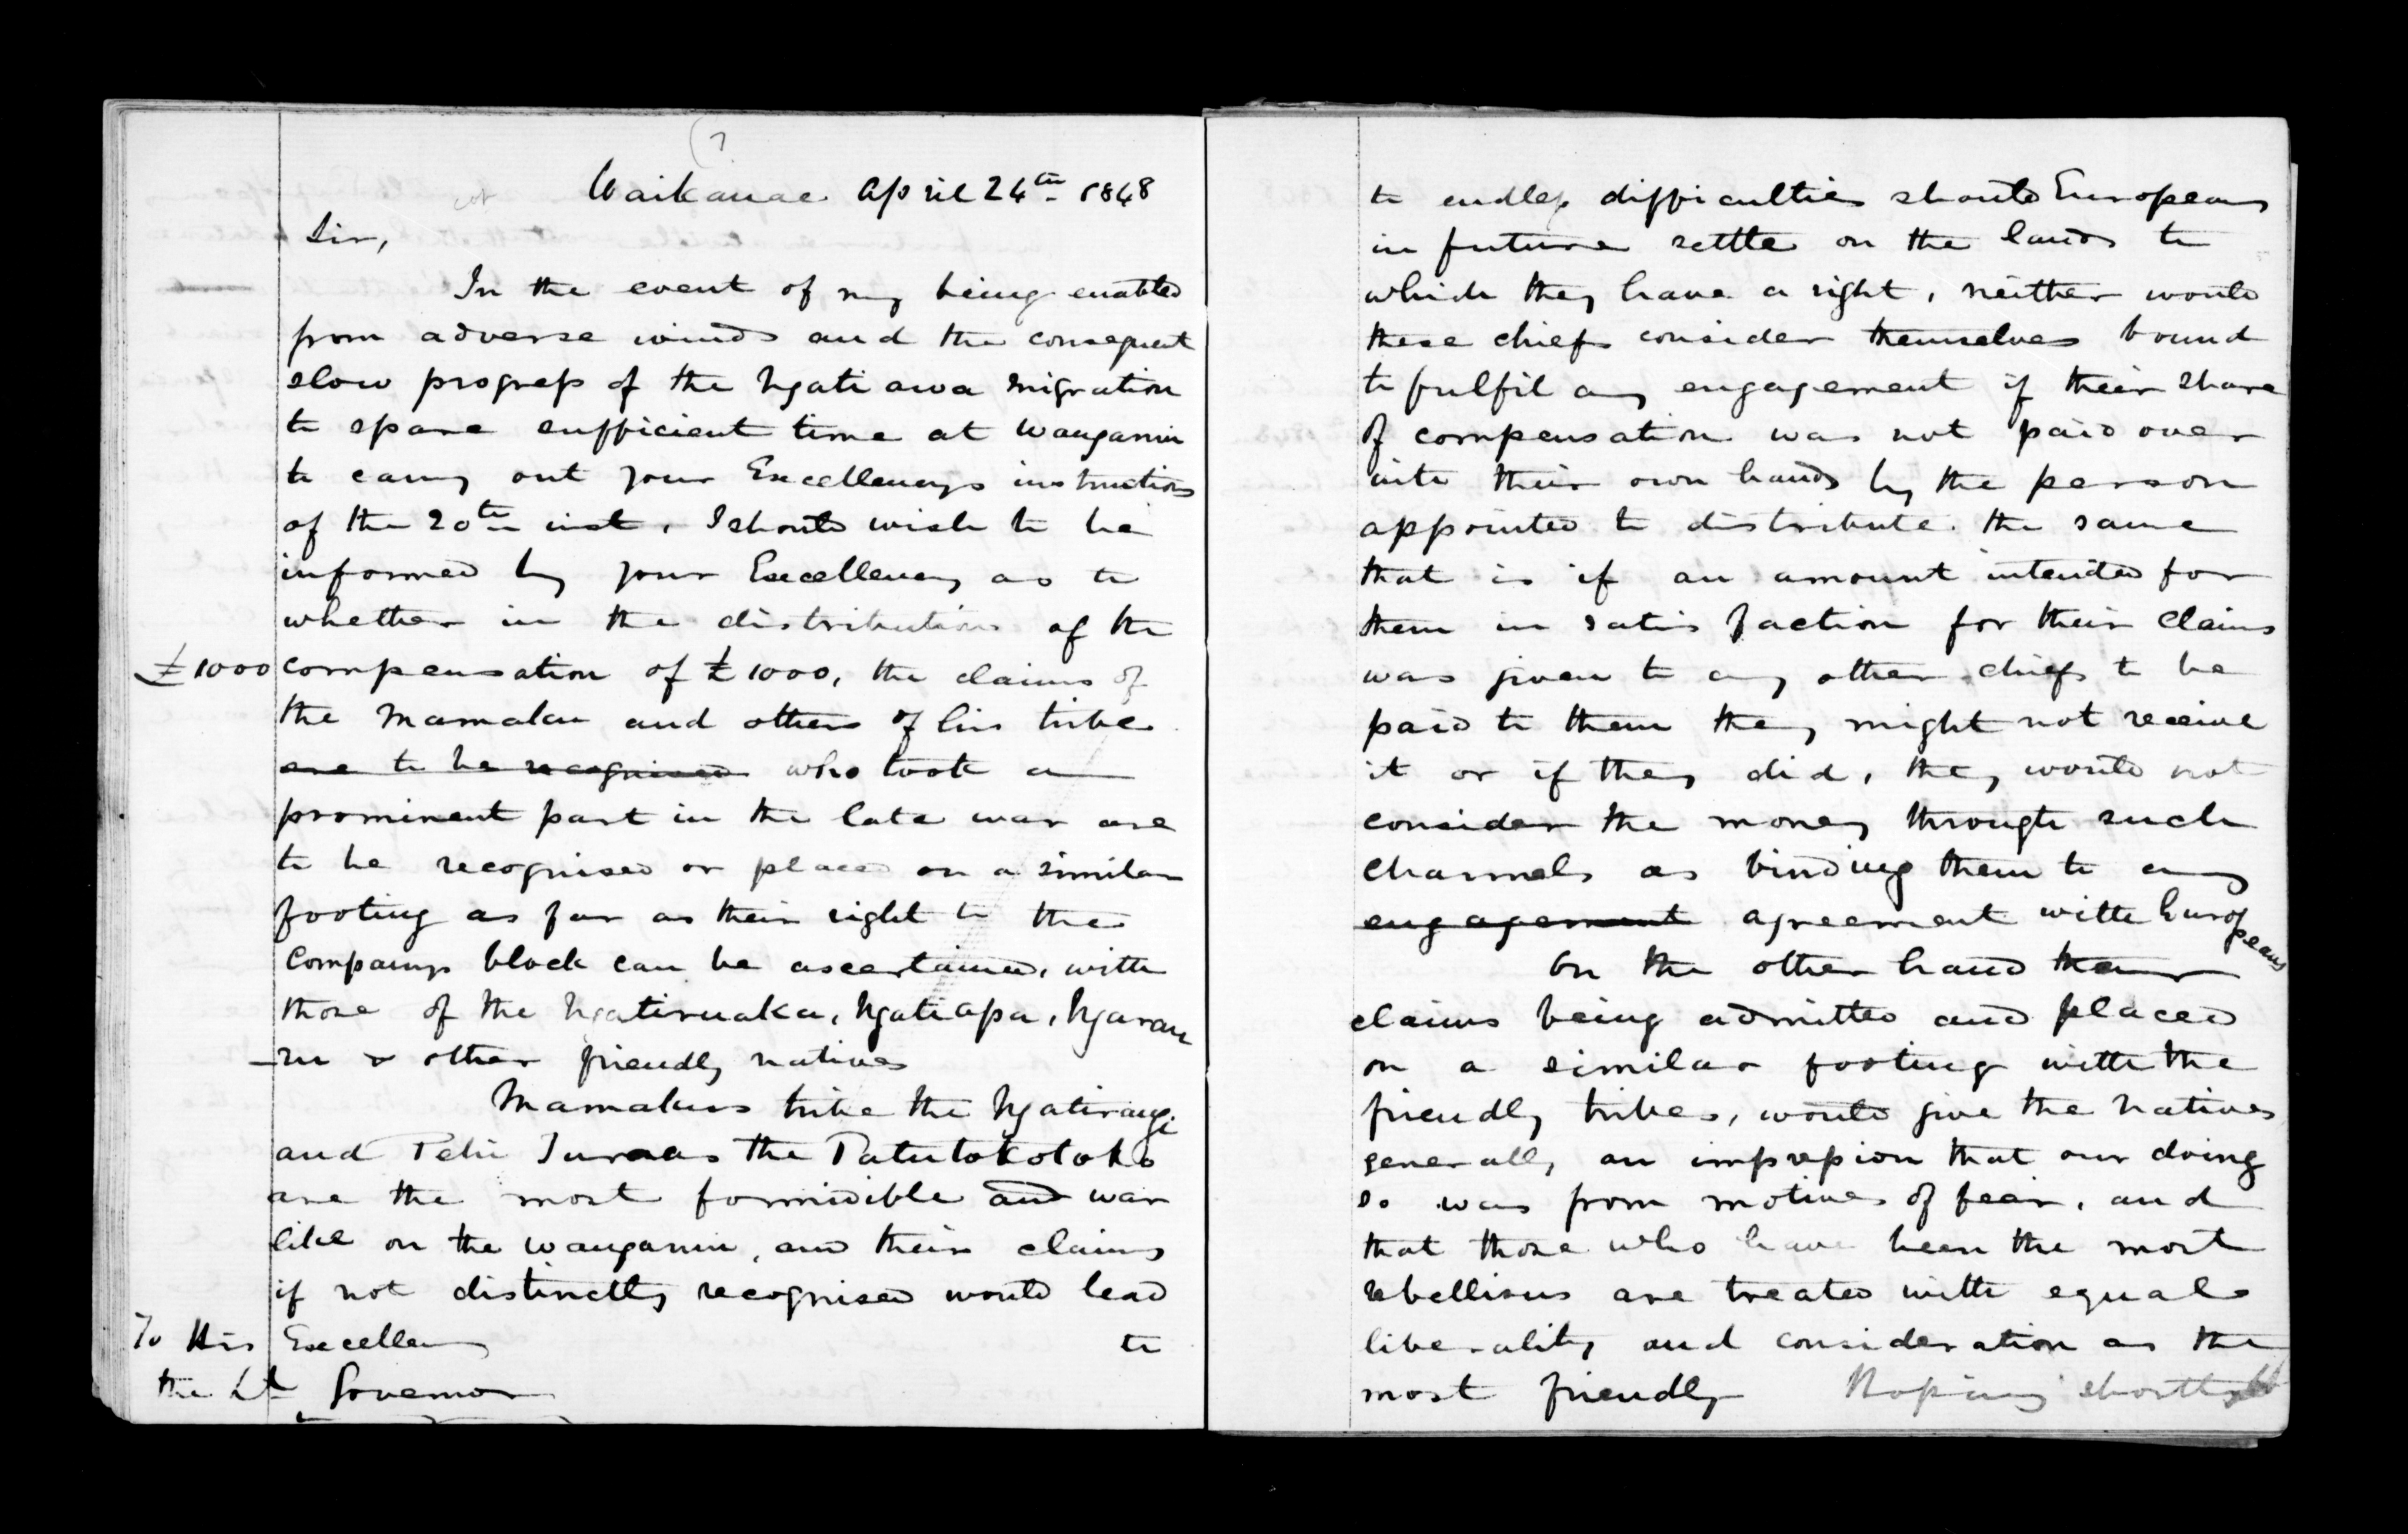 Waikanae April 24th 1848
Sir,
In the event of my being enabled
from adverse winds and the consequent
slow progress of the Ngatiawa migration
to spare sufficient time at Wanganui
to carry out your Excellencys instructions
of the 20th inst, I should wish to be
informed by your Excellency as to
whether in the distribution of the
£1000 compensation of £1000, the claims of
the Mamaku and others of his tribe
are to be recognised who took a
prominent part in the late war are
to be recognised or placed on a similar
footing as far as their right to the
Companys block can be ascertained, with
those of the Ngatiruaka, Ngatiapa, Ngarau
-ru & other friendly natives
Mamakus tribe the Ngatirangi
and Pehi Turoas the Patutokotoko
are the most formidible and war
like on the Wanganui, and their claims
if not distinctly recognised would lead
To His Excellency to
the Lt Governor
to endless difficulties should Europeans
in future settle on the lands to
which they have a right, neither would
these chiefs consider themselves bound
to fulfil any engagement if their share
of compensation was not paid over
into their own hands by the person
appointed to distribute the same
that is if an amount intended for
them in satisfaction for their claims
was given to any other chiefs to be
paid to them they might not receive
it or if they did, they would not
consider the money through such
channels as binding them to any
engagement agreement with Europeans
On the other hand their
claims being admitted and placed
on a similar footing with the
friendly tribes, would give the natives
generally an impression that our doing
so was from motives of fear, and
that those who have been the most
rebellious are treated with equal
liberality and consideration as the
most friendly Hoping shortly